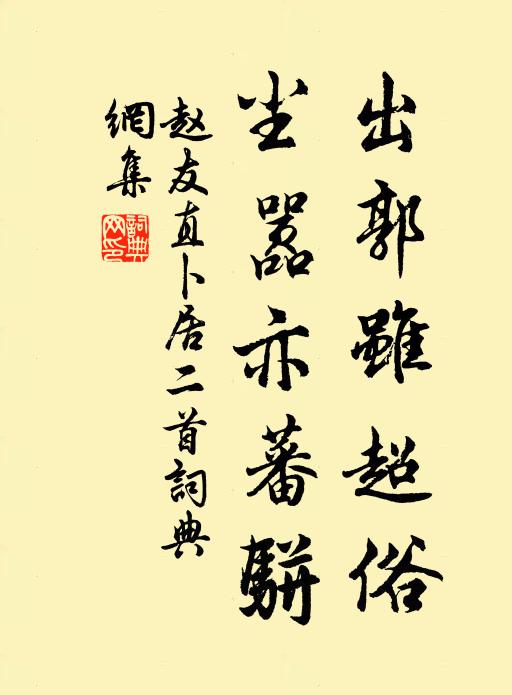 出郭雖超俗
坐嚣亦蕃駢
赵友直卜居二首詞典
網集
詞典
网印